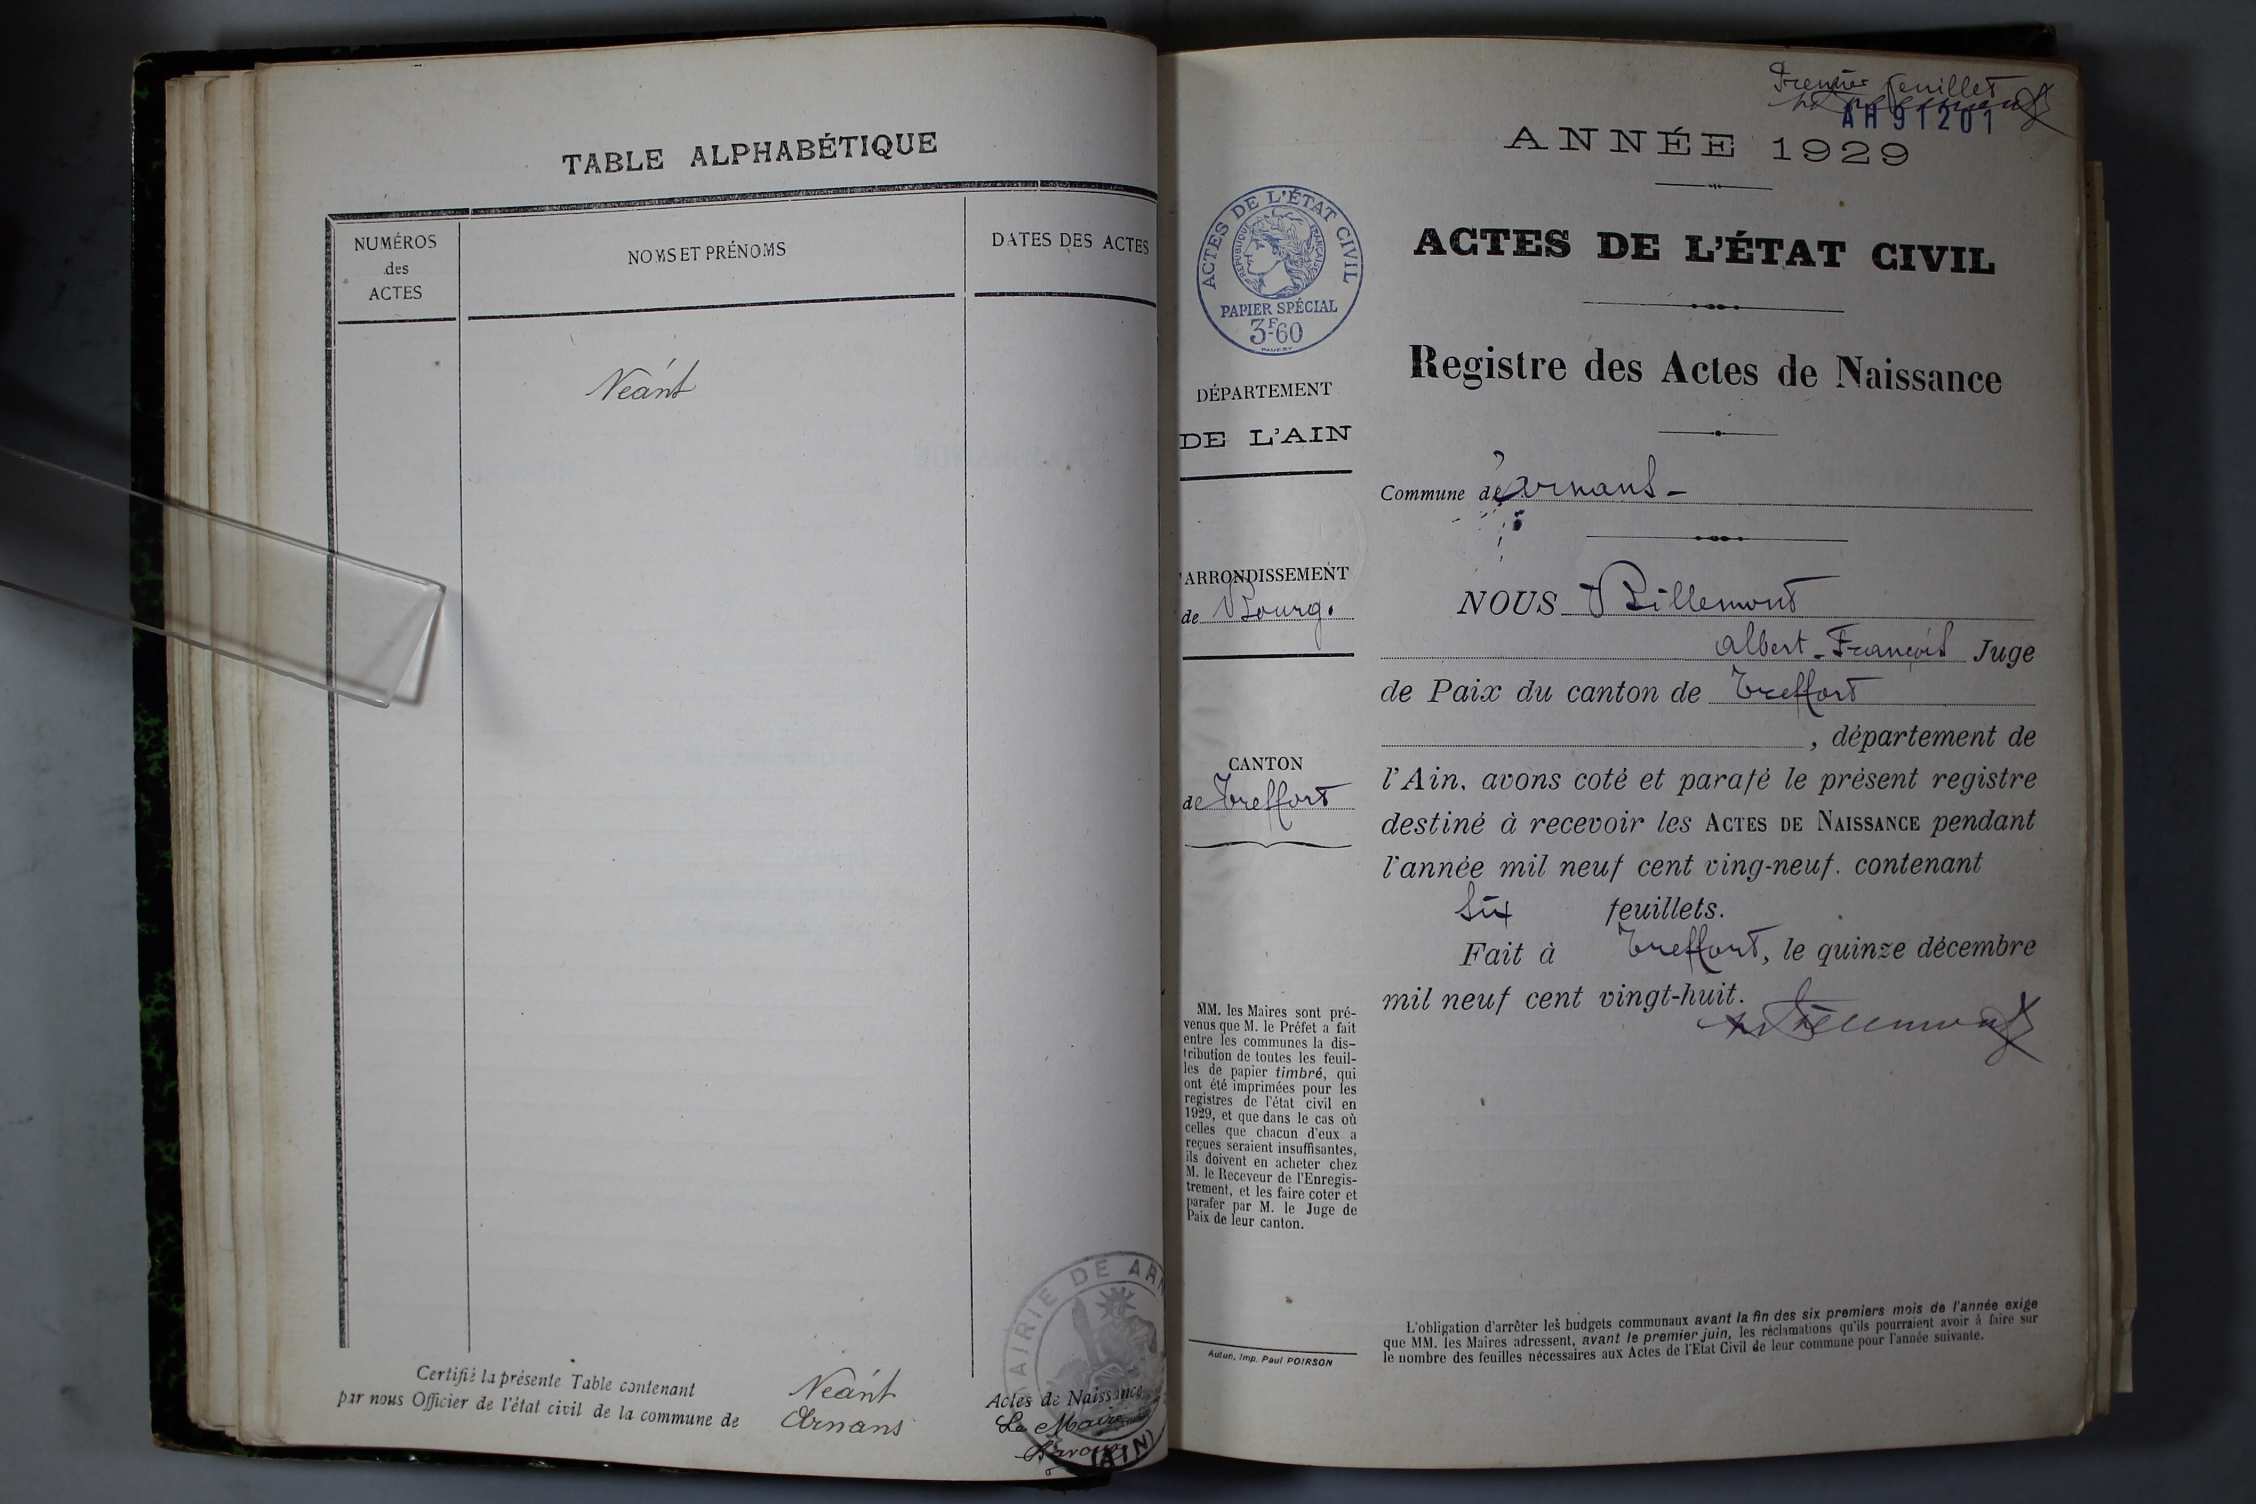 TABLE ALPHABÉTIQUE
NUMÉROS
des
ACTES
NOMS ET PRÉNOMS
DATES DES ACTES
Néant
Certifié la présente Table contenant
Néant
Actes de Naissance
par nous Officier de l'état civil de la commune de
Arnans
Le Maire
MAIRIE DE ARN
(AIN)
Premier feuillet
AH91201
ANNÉE 1929
ACTES DE L'ÉTAT CIVIL
RÉPUBLIQUE FRANÇAISE
PAPIER SPÉCIAL
3F60
ACTES DE L'ÉTAT CIVIL
Registre des Actes de Naissance
DÉPARTEMENT
DE L'AIN
Commune de Arnans -
ARRONDISSEMENT
de Bourg.
CANTON
de Treffort
NOUS Billemont
Albert-François Juge
de Paix du canton de Treffort
, département de
l'Ain, avons coté et parafé le présent registre
destiné à recevoir les ACTES DE NAISSANCE pendant
l'année mil neuf cent ving-neuf. contenant
Six feuillets.
Fait à Treffort, le quinze décembre
mil neuf cent vingt-huit.
MM. les Maires sont pré-
venus que M. le Préfet a fait
entre les communes la dis-
tribution de toutes les feuil-
les de papier timbré, qui
ont été imprimées pour les
registres de l'état civil en
1929, et que dans le cas où
celles que chacun d'eux a
reçues seraient insuffisantes,
ils doivent en acheter chez
M. le Receveur de l'Enregis-
trement, et les faire coter et
parafer par M. le Juge de
Paix de leur canton.
Autun, Imp. Paul POIRSON
L'obligation d'arrêter les budgets communaux avant la fin des six premiers mois de l'année exige
que MM. les Maires adressent, avant le premier juin, les réclamations qu'ils pourraient avoir à faire sur
le nombre des feuilles nécessaires aux Actes de l'Etat Civil de leur commune pour l'année suivante.